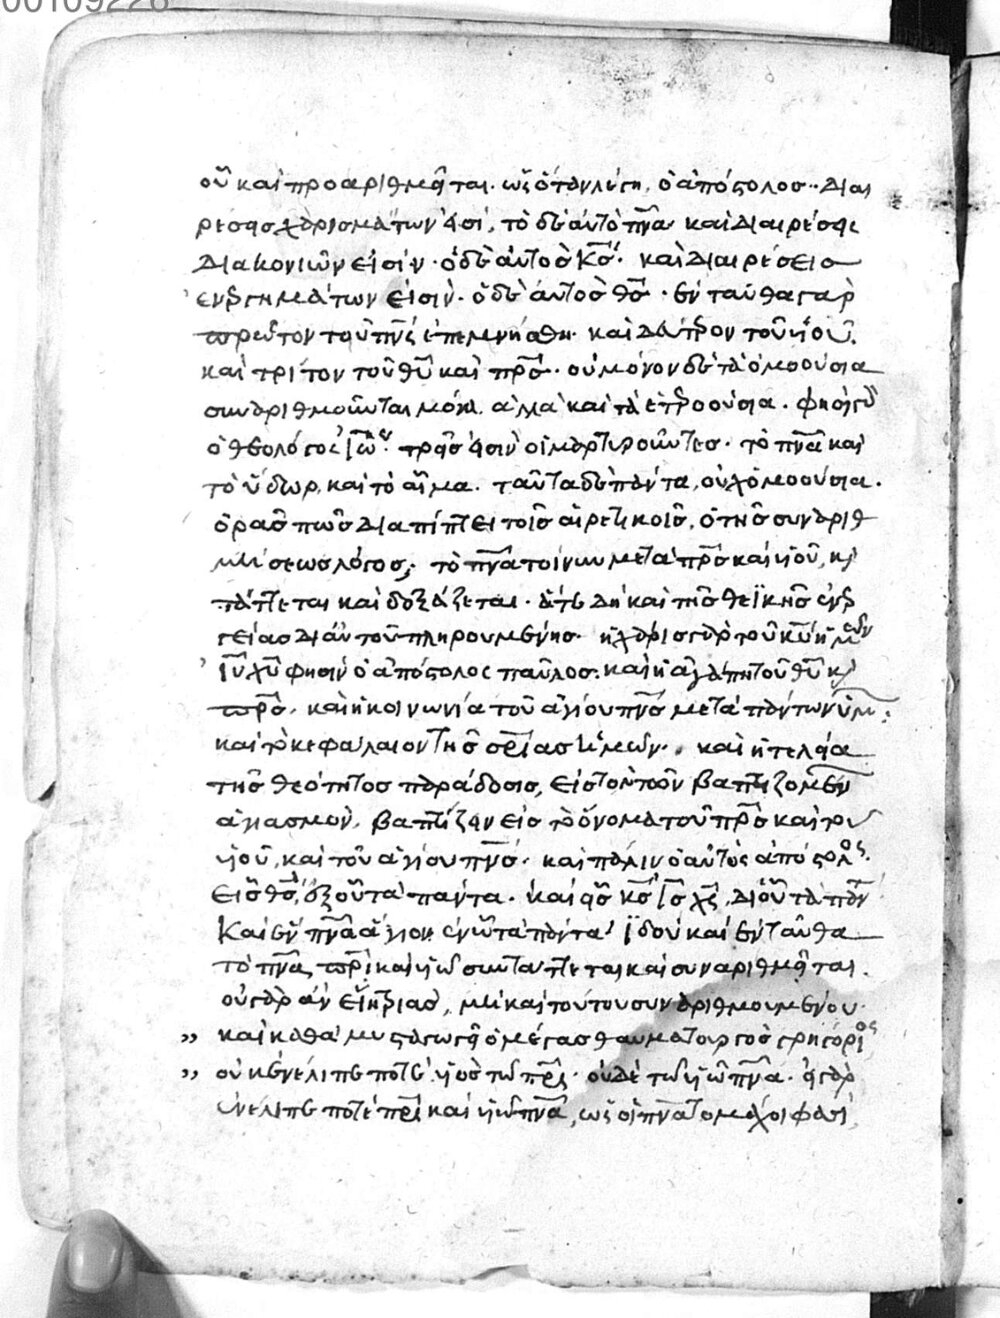 οὗ καὶ προαριθμεῖται. ὡς ὅταν λέγη, ὁ ἀπόστολος· Διαι
ρέσεις χαρισμάτων εἰσί, τὸ δὲ αὐτὸ πνα· καὶ Διαιρέσεις
Διακονιῶν εἰσίν· ὁ δὲ αὐτὸς Κς. καὶ Διαιρέσεις
ἐνεργημάτων εἰσὶν· ὁ δὲ αὐτὸς θς. ἐνταῦθα γὰρ
πρῶτον τοῦ πνς ἐπεμνήσθη· καὶ Δεύτερον τοῦ υἱοῦ.
καὶ τρίτον τοῦ θυ καὶ πρς. οὐ μόνον δὲ τὰ ὁμοούσια
συναριθμοῦνται μόνα. ἀλλὰ καὶ τὰ ἑτεροούσια. φησὶ γὰρ
ὁ θεολόγος Ἰω. τρεῖς εἰσὶν οἱ μαρτυροῦντες. τὸ πνα καὶ
τὸ ὕδωρ, καὶ τὸ αἷμα. ταῦτα δὲ πάντα, οὐχ ὁμοούσια.
ὁρᾶς πῶς Διαπίπτει τοῖς αἱρετικοῖς, ὁ τῆς συναριθ
μήσεως λόγος; τὸ πνα τοίνυν μετὰ πρς καὶ υἱοῦ, κὶ
τάττεται καὶ δοξάζεται. ἅτε Δὴ καὶ τῆς θεϊκῆς ἐνερ
γείας Δι' αὐτοῦ πληρουμένης. ἡ χάρις γὰρ τοῦ κυ ἡμῶν
Ἰυ χυ φησὶν ὁ ἀπόστολος παῦλος. καὶ ἡ ἀγάπη τοῦ θυ κὶ
πρς. καὶ ἡ κοινωνία τοῦ ἁγίου πνς μετὰ πάντων ὑμ.
καὶ τὸ κεφάλαιον τῆς σρίας ἡμῶν. καὶ ἡ τελεία
τῆς θεότητος παράδοσις, εἰς τὸν τῶν βαπτιζομένων
ἁγιασμὸν, βαπτίζειν εἰς τὸ ὄνομα τοῦ πρς καὶ τοῦ
υἱοῦ, καὶ τοῦ ἁγίου πνς. καὶ πάλιν ὁ αὐτὸς ἀπόστολος.
Εἷς θς, ἐξ οὗ τὰ πάντα. καὶ εἷς κς ις χς, Δι' οὗ τὰ πάν
Καὶ ἓν πνα ἅγιον ἐν ὧ τὰ πάντα· ἰδοὺ καὶ ἐνταῦθα
τὸ πνα, πρὶ καὶ υἱῶ συντάττεται καὶ συναριθμεῖται.
οὐ γὰρ ἂν εἴη τριας, μὴ καὶ τούτου συναριθμουμένου.
„ καὶ καθὰ μυσταγωγεῖ ὁ μέγας θαυματουργὸς γρηγόριος
„ οὐκ ἐνέλιπέ ποτε υἱὸς τῶ πρι. οὐδὲ τῶ υἱῶ πνα. εἰ γὰρ
ἐνέλιπέ ποτε πρὶ καὶ υἱῶ πνα, ὡς οἱ πνατομάχοι φασὶ,